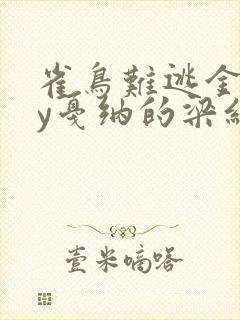 雀鳥難逃金
y戛纳的梁
壹米嘀嗒